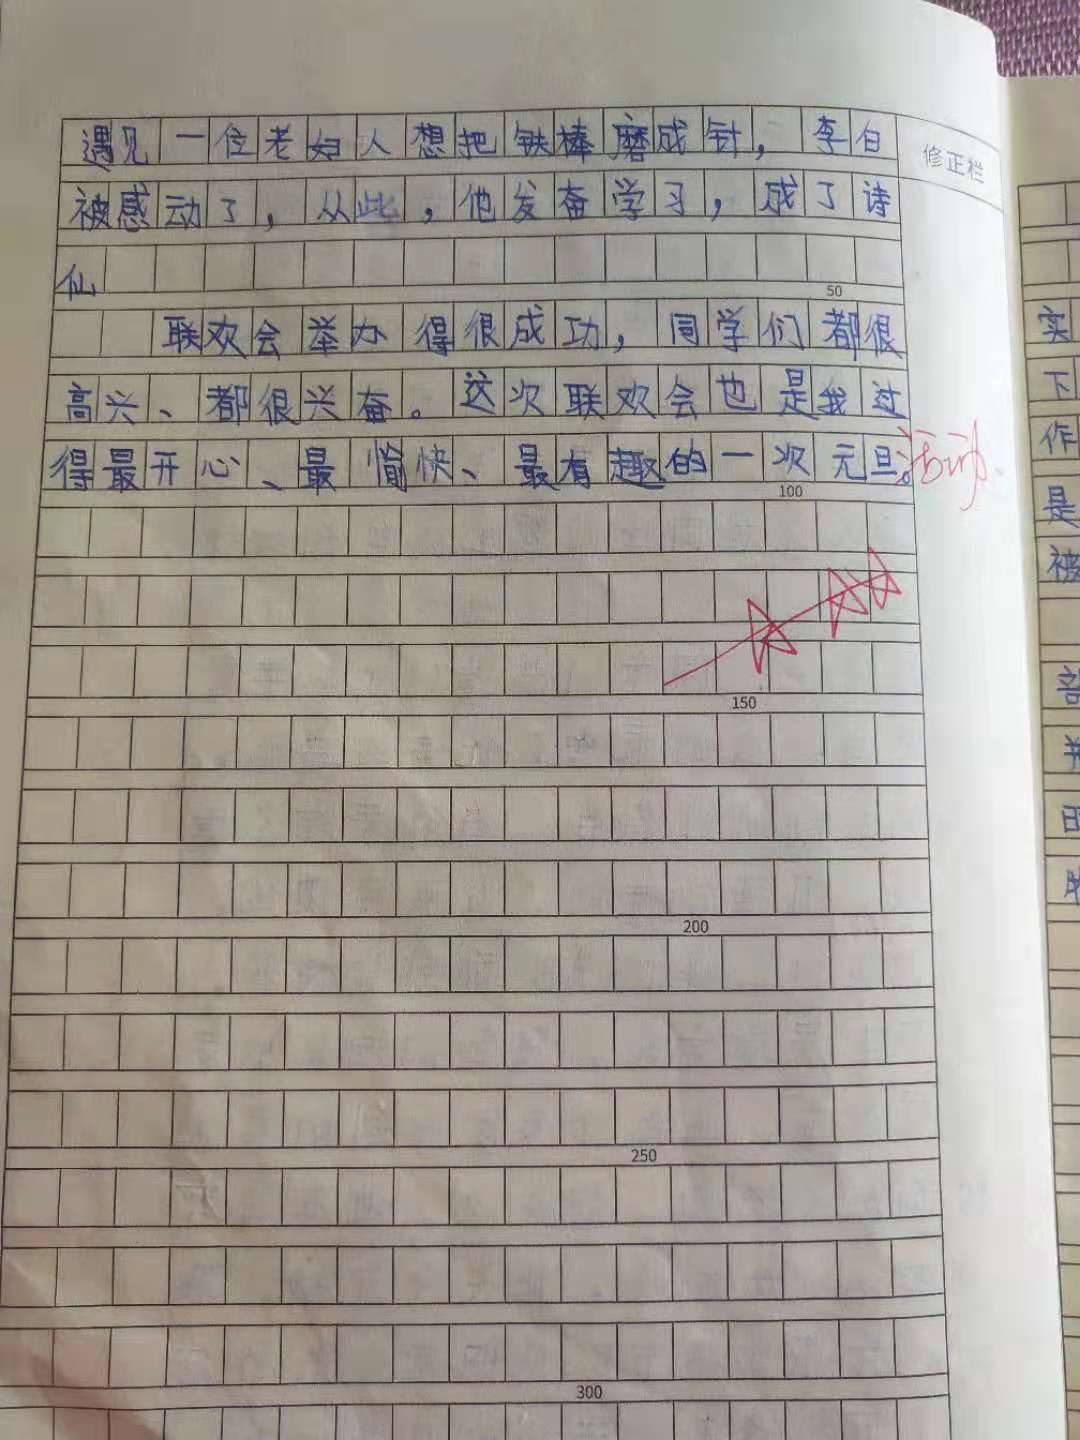 遇见一位老妇人想把铁棒磨成针，李白
修正栏
被感动了，从此，他发奋学习，成了诗
仙
50
联欢会举办得很成功，同学们都很
高兴、都很兴奋。这次联欢会也是我过
得最开心、最愉快、最有趣的一次元旦。活动
100
150
200
250
300
实
下
作
是
被
部
田